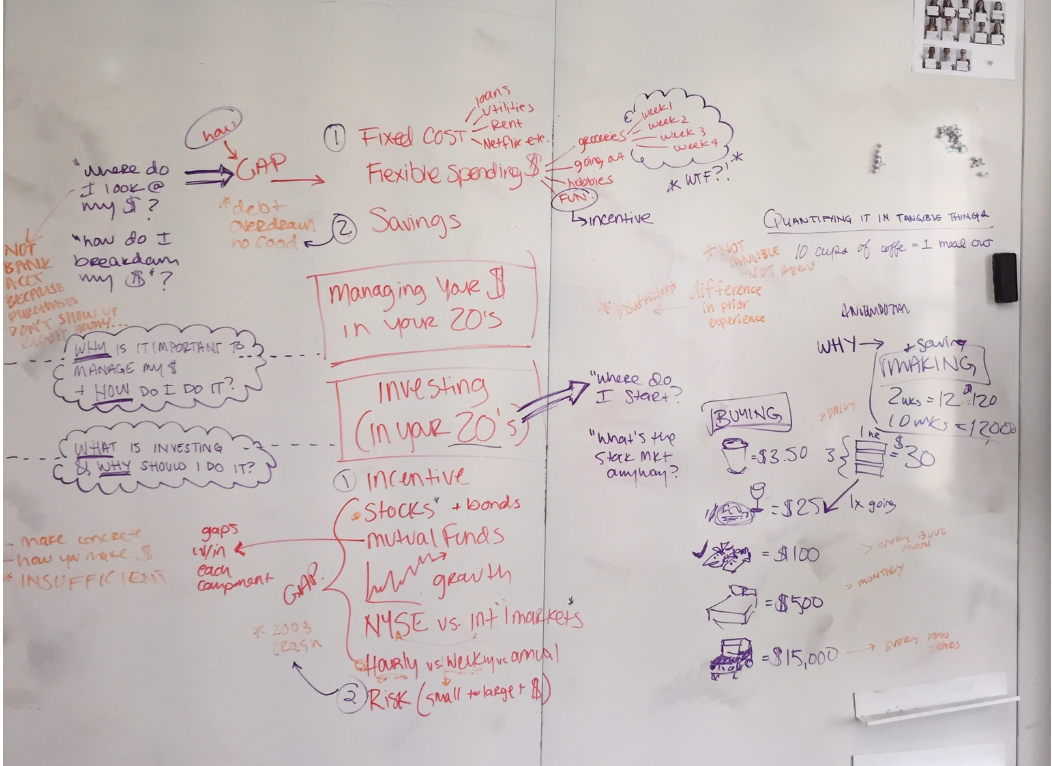 how
"where do
I look @
my $?
"how do I
breakdown
my $"?
NOT
BANK
ACCT
BECAUSE
PURCHASES
DON'T SHOW UP
RIGHT AWAY...
GAP
* debt
overdrawn
no good
① Fixed COST
loans
utilities
Rent
Netflix etc.
Flexible Spending $
groceries
going out
hobbies
FUN!
week 1
week 2
week 3
week 4
* WTF?!
*
incentive
② Savings
managing your $
in your 20's
WHY IS IT IMPORTANT TO
MANAGE MY $
+ HOW DO I DO IT?
WHAT IS INVESTING
& WHY SHOULD I DO IT?
investing
(in your 20's)
"where do
I start?
"What's the
stock mkt
anyway?
① incentive
stocks* + bonds
mutual funds
growth
NYSE vs. int'l markets*
Hourly vs weekly vs annual
② Risk (small to larger $)
GAP
gaps
w/in
each
component
- make concrete
- how you make $
* INSUFFICIENT
* 2008
crash
QUANTIFYING IT IN TANGIBLE THINGS
10 cups of coffe = 1 meal out
* NOT
TANGIBLE
* insufficient
difference
in prior
experience
WHY
+ saving
MAKING
2 wks = 120
10 wks =
BUYING
= $3.50
> DAILY
3
= $30
= $25
1x going
= $100
= $500
< MONTHLY
= $15,000